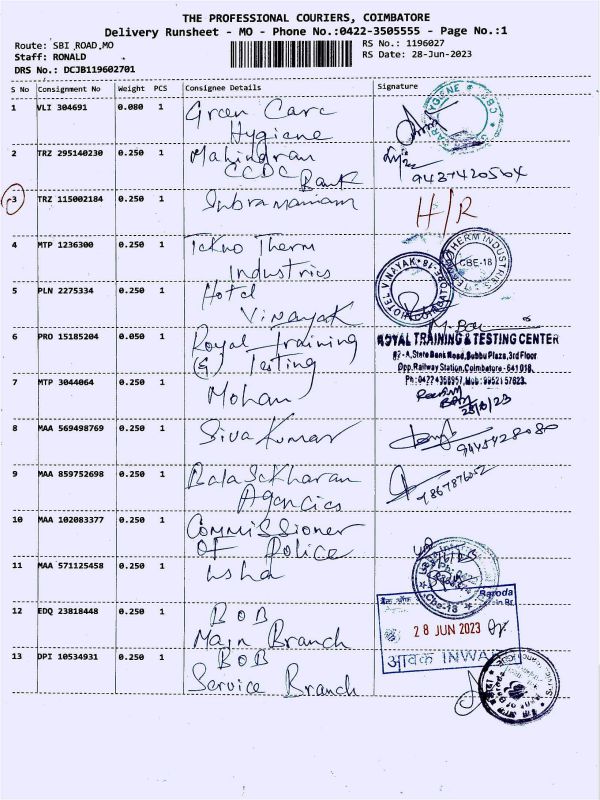 THE PROFESSIONAL COURIERS, COIMBATORE
Delivery Runsheet - MO - Phone No.:0422-3505555 - Page No.:1
Route: SBI ROAD,MO
RS No.: 1196027
Staff: RONALD
RS Date: 28-Jun-2023
DRS No.: DCJB119602701
S No Consignment No Weight PCS Consignee Details Signature
1 VLI 304691 0.080 1 Green Care
Hygiene
2 TRZ 295140230 0.250 1 Mahindran
CCDC Bank
9437420564
3 TRZ 115002184 0.250 1 Subramaniam H/R
4 MTP 1236300 0.250 1 Tekno Therm
Industries
CBE-18
5 PLN 2275334 0.250 1 Hotel
Vinayak
HOTEL VINAYAK
6 PRO 15185204 0.050 1 Royal Training
(&) Testing
ROYAL TRAINING & TESTING CENTER
82-A, State Bank Road, Subbu Plaza, 3rd Floor
Opp. Railway Station, Coimbatore - 641 018.
7 MTP 3044064 0.250 1 Mohan
28/6/23
8 MAA 569498769 0.250 1 Siva Kumar
9445428080
9 MAA 859752698 0.250 1 Balasekharan
Agencies
10 MAA 102083377 0.250 1 Commissioner
Of Police
11 MAA 571125458 0.250 1 Usha
Cbe-18
12 EDQ 23818448 0.250 1 BOB
Main Branch
Baroda
28 JUN 2023
आवक INWARD
13 DPI 10534931 0.250 1 BOB
Service Branch